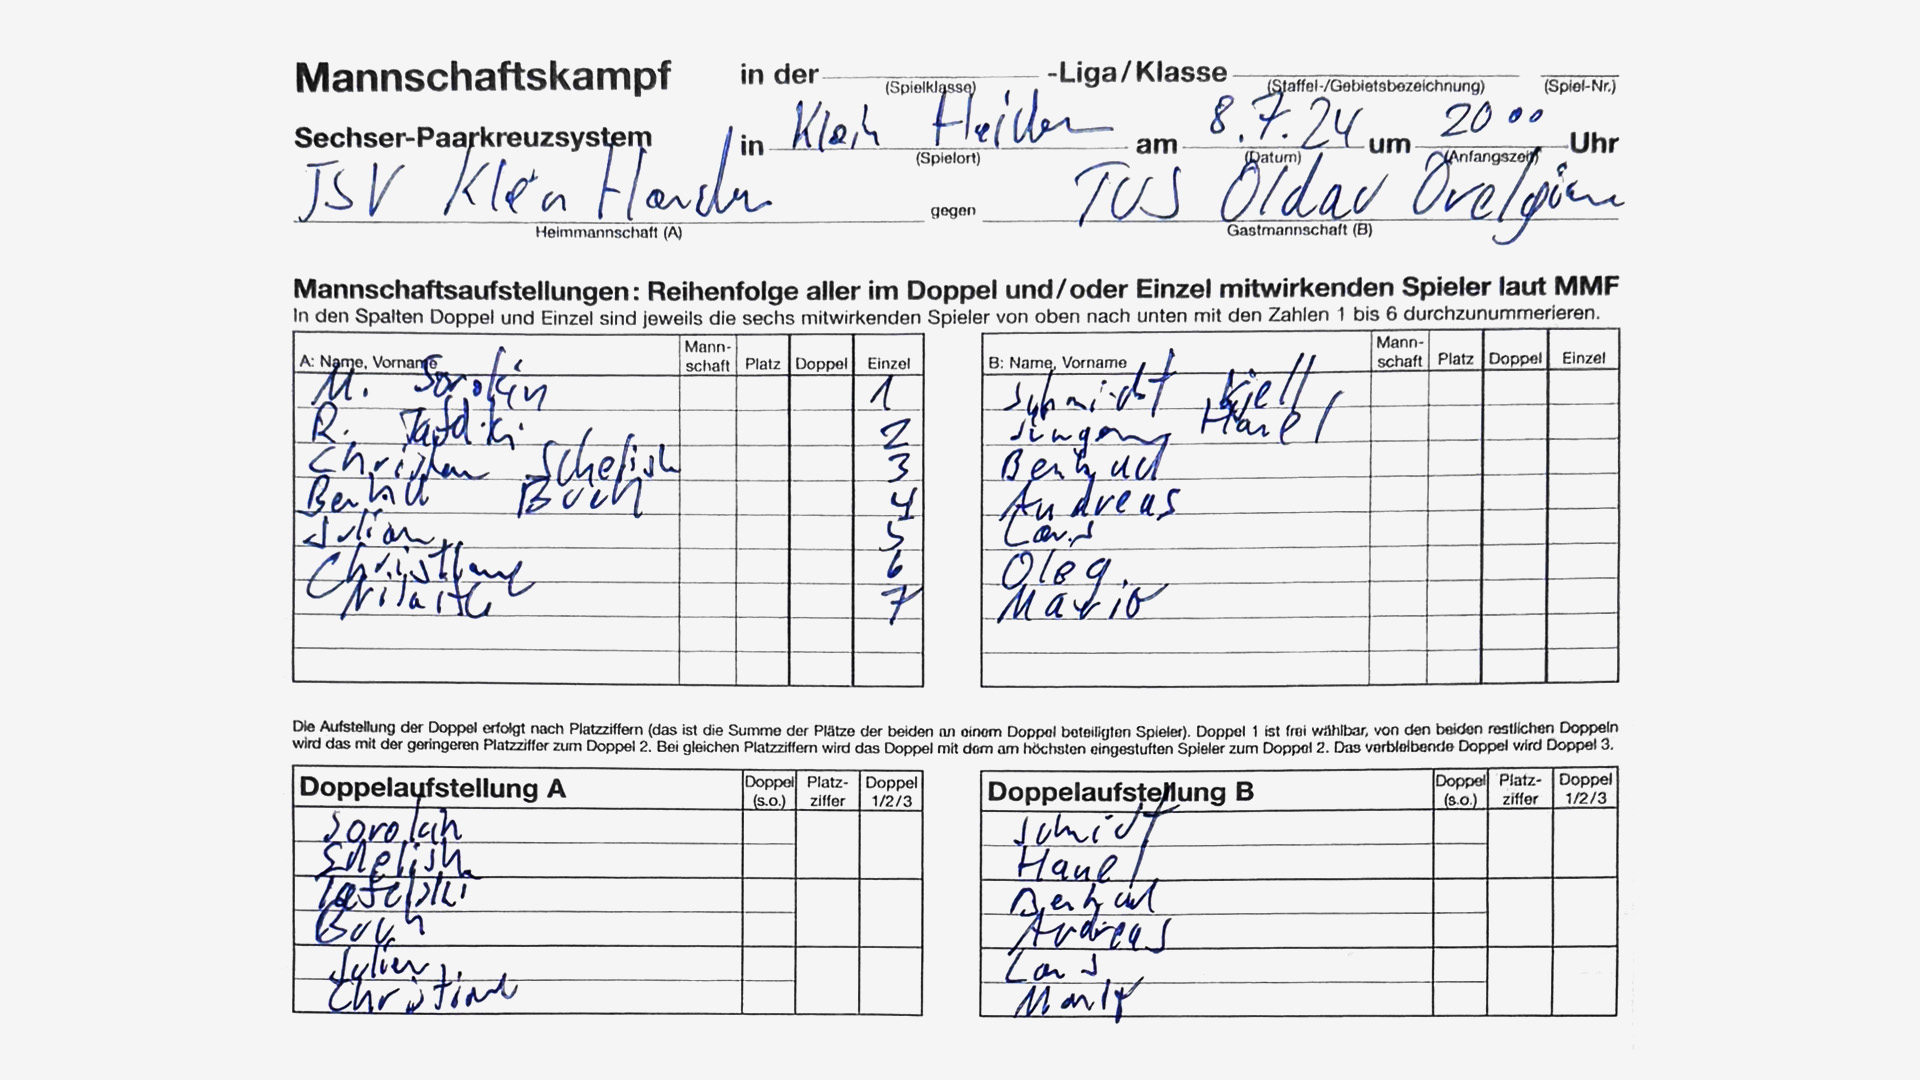 Mannschaftskampf in der -Liga/Klasse
(Spielklasse) (Staffel-/Gebietsbezeichnung) (Spiel-Nr.)
Sechser-Paarkreuzsystem in Klein am 8.7.24 um 20 00 Uhr
(Spielort) (Datum) (Anfangszeit)
TSV Klein gegen TUS
Heimmannschaft (A) Gastmannschaft (B)
Mannschaftsaufstellungen: Reihenfolge aller im Doppel und/oder Einzel mitwirkenden Spieler laut MMF
In den Spalten Doppel und Einzel sind jeweils die sechs mitwirkenden Spieler von oben nach unten mit den Zahlen 1 bis 6 durchzunummerieren.
A: Name, Vorname Mann-schaft Platz Doppel Einzel
M. Sorokin 1
R. 2
Christian 3
Buch 4
Julian 5
6
7
B: Name, Vorname Mann-schaft Platz Doppel Einzel
Schmidt Kjell
Andreas
Lars
Oleg
Mario
Die Aufstellung der Doppel erfolgt nach Platzziffern (das ist die Summe der Plätze der beiden an einem Doppel beteiligten Spieler). Doppel 1 ist frei wählbar, von den beiden restlichen Doppeln
wird das mit der geringeren Platzziffer zum Doppel 2. Bei gleichen Platzziffern wird das Doppel mit dem am höchsten eingestuften Spieler zum Doppel 2. Das verbleibende Doppel wird Doppel 3.
Doppelaufstellung A Doppel (s.o.) Platz-ziffer Doppel 1/2/3
Sorokin
Buch
Julian
Doppelaufstellung B Doppel (s.o.) Platz-ziffer Doppel 1/2/3
Schmidt
Andreas
Lars